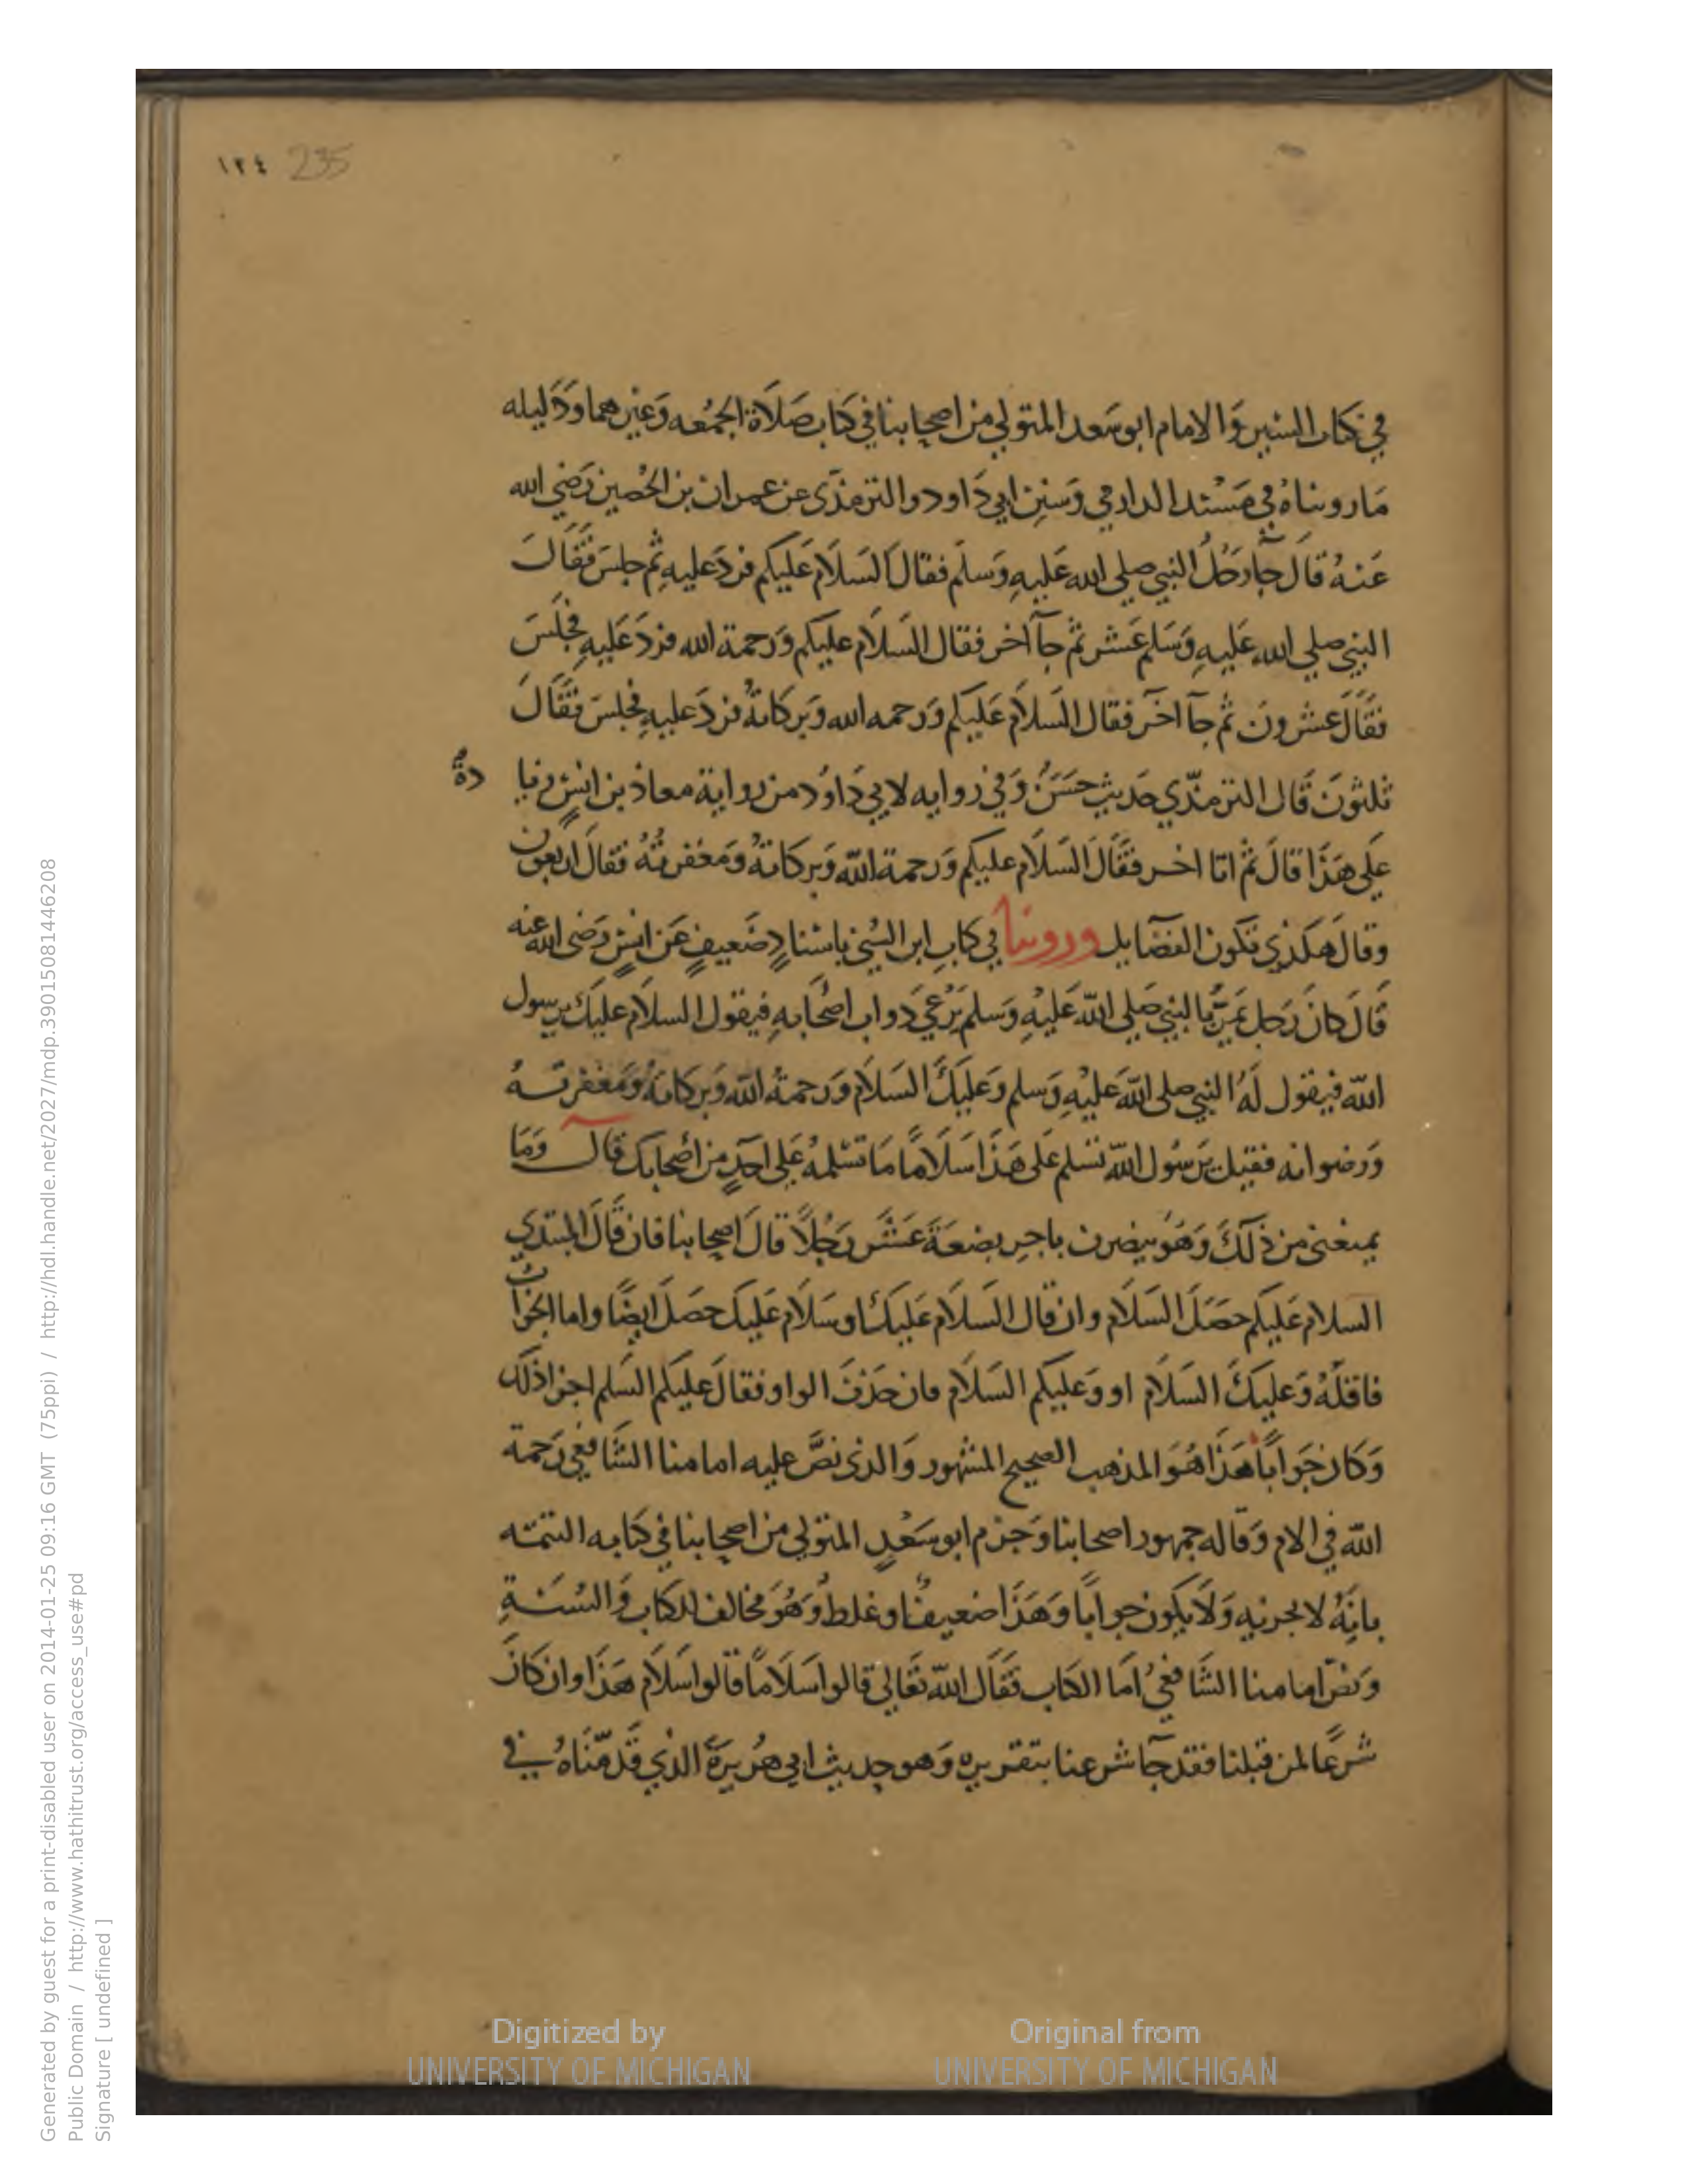 ١٢٤ 235
في كتاب السنير والامام ابو سَعد المتولي من اصحابنا في كتاب صَلَاة الجمُعه وَغيرهما وَدَليله
مَا رويناهُ في مسْند الدارمي وَسنن ابي دَاود والترمذّى عن عمران بن الحُصين رَضي الله
عَنهُ قال جآ رَجُلُ النبي صلى الله عَليهِ وَسلم فقال السَلَام عَليكم فردَ عليهِ ثم جلسَ فقَالَ
النبي صلي الله عَليهِ وَسَلم عَشر ثم جآ اخر فقال السَلَام عليكم وَرحمة الله فردَ عَليهِ فجلسَ
فقَالَ عشرونَ ثم جآ اخَر فقال السَلَام عَليكم وَرحمه الله وَبركاتهُ فردَ عليهِ فجلسَ فقَالَ
ثلثونَ قَال الترمذّي حَديث حسَنُ وَفي روايه لابي دَاوُد من رواية معاذ بن انسٍ زيا
دةُ
عَلي هَذَا قالَ ثم اتا اخر فقَالَ السَلَام عليكم وَرحمة اللّه وَبركاتهُ وَمغفرتهُ فقالَ اربعون
وقالَ هكذي تكون الفضَايل وروينا في كتابِ ابن السُني باسْنادٍ ضَعيفٍ عَن انسٍ رَضى الله عنه
قَالَ كانَ رَجل يَمرُّ بالنبي صَلي اللّه عَليْهِ وَسلم يَرْعي دَواب اصْحَابهِ فيقول السلَام عليكَ يرسول
اللّه فيقول لَهُ النبي صلى اللّه عَليْهِ وَسلم وَعَليكَ السَلَام وَرحمةُ اللّه وَبركاتهُ وَمَغفرتهُ
وَرضوانه فقيل يرَسُول اللّه تسَلم عَلى هَذَا سَلَامًا مَا تسْلمهُ عَلي احَدٍ من اصْحَابك قال وَمَا
يمنعْني من ذَلكَ وَهُوَ ينصرف باجرِ بضعَةَ عَشَر رَجُلًا قالَ اصحابنا فان قَالَ المبتدي
السلام عَليكم حَصَلَ السَلَام وان قال السَلَام عَليكَ او سَلَام عَليك حصَلَ ايضًا واما الجوَاب
فاقلّهُ وَعَليكَ السَلَام او وَعَليكم السَلَام فان حَذفَ الواو فقالَ عَليكم السَلم اجزا ذلك
وَكان جَوَابًا هَذَا هُوَ المذهب الصحيح المشهور وَالذى نصَّ عليه امامنا الشَافعي رَحمة
اللّه في الام وَقاله جمهور اصحابنا وَجزم ابو سَعْدٍ المتولي من اصحابنا في كتابه التتمته
بانهُ لا يجزيه وَلَا يكون جوابًا وَهَذَا ضعيفُ او غلط وَهُوَ مخالف للكتاب وَالسُنةِ
وَنصّ امامنا الشَافعيُ امَا الكتاب فقَالَ اللّه تعَالي قالوا سَلَامًا قالوا سَلَام هَذَا وان كانَ
شرعًا لمن قبلنا فقد جآ شرعنا بتقريرهِ وَهو حديث ابي هُريرَةَ الذي قدّمنَاهُ في
Generated by guest for a print-disabled user on 2014-01-25 09:16 GMT (75ppi) / http://hdl.handle.net/2027/mdp.39015081446208
Public Domain / http://www.hathitrust.org/access_use#pd
Signature [ undefined ]
Digitized by
UNIVERSITY OF MICHIGAN
Original from
UNIVERSITY OF MICHIGAN